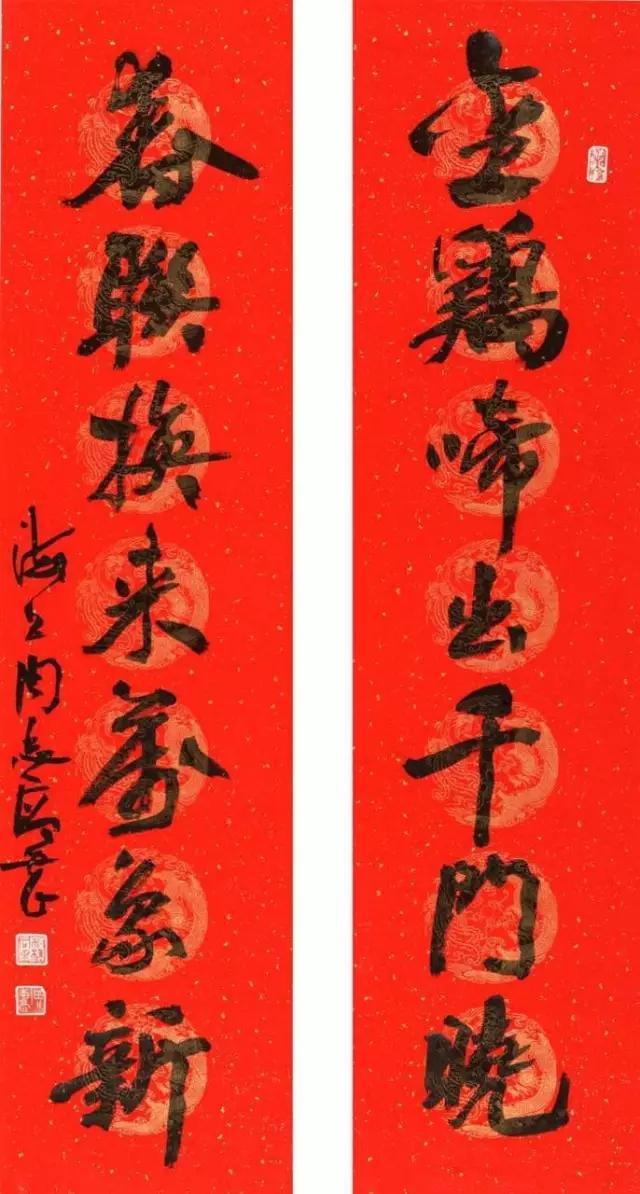 金鷄啼出千門曉
春聯換来萬象新
海上周志高書